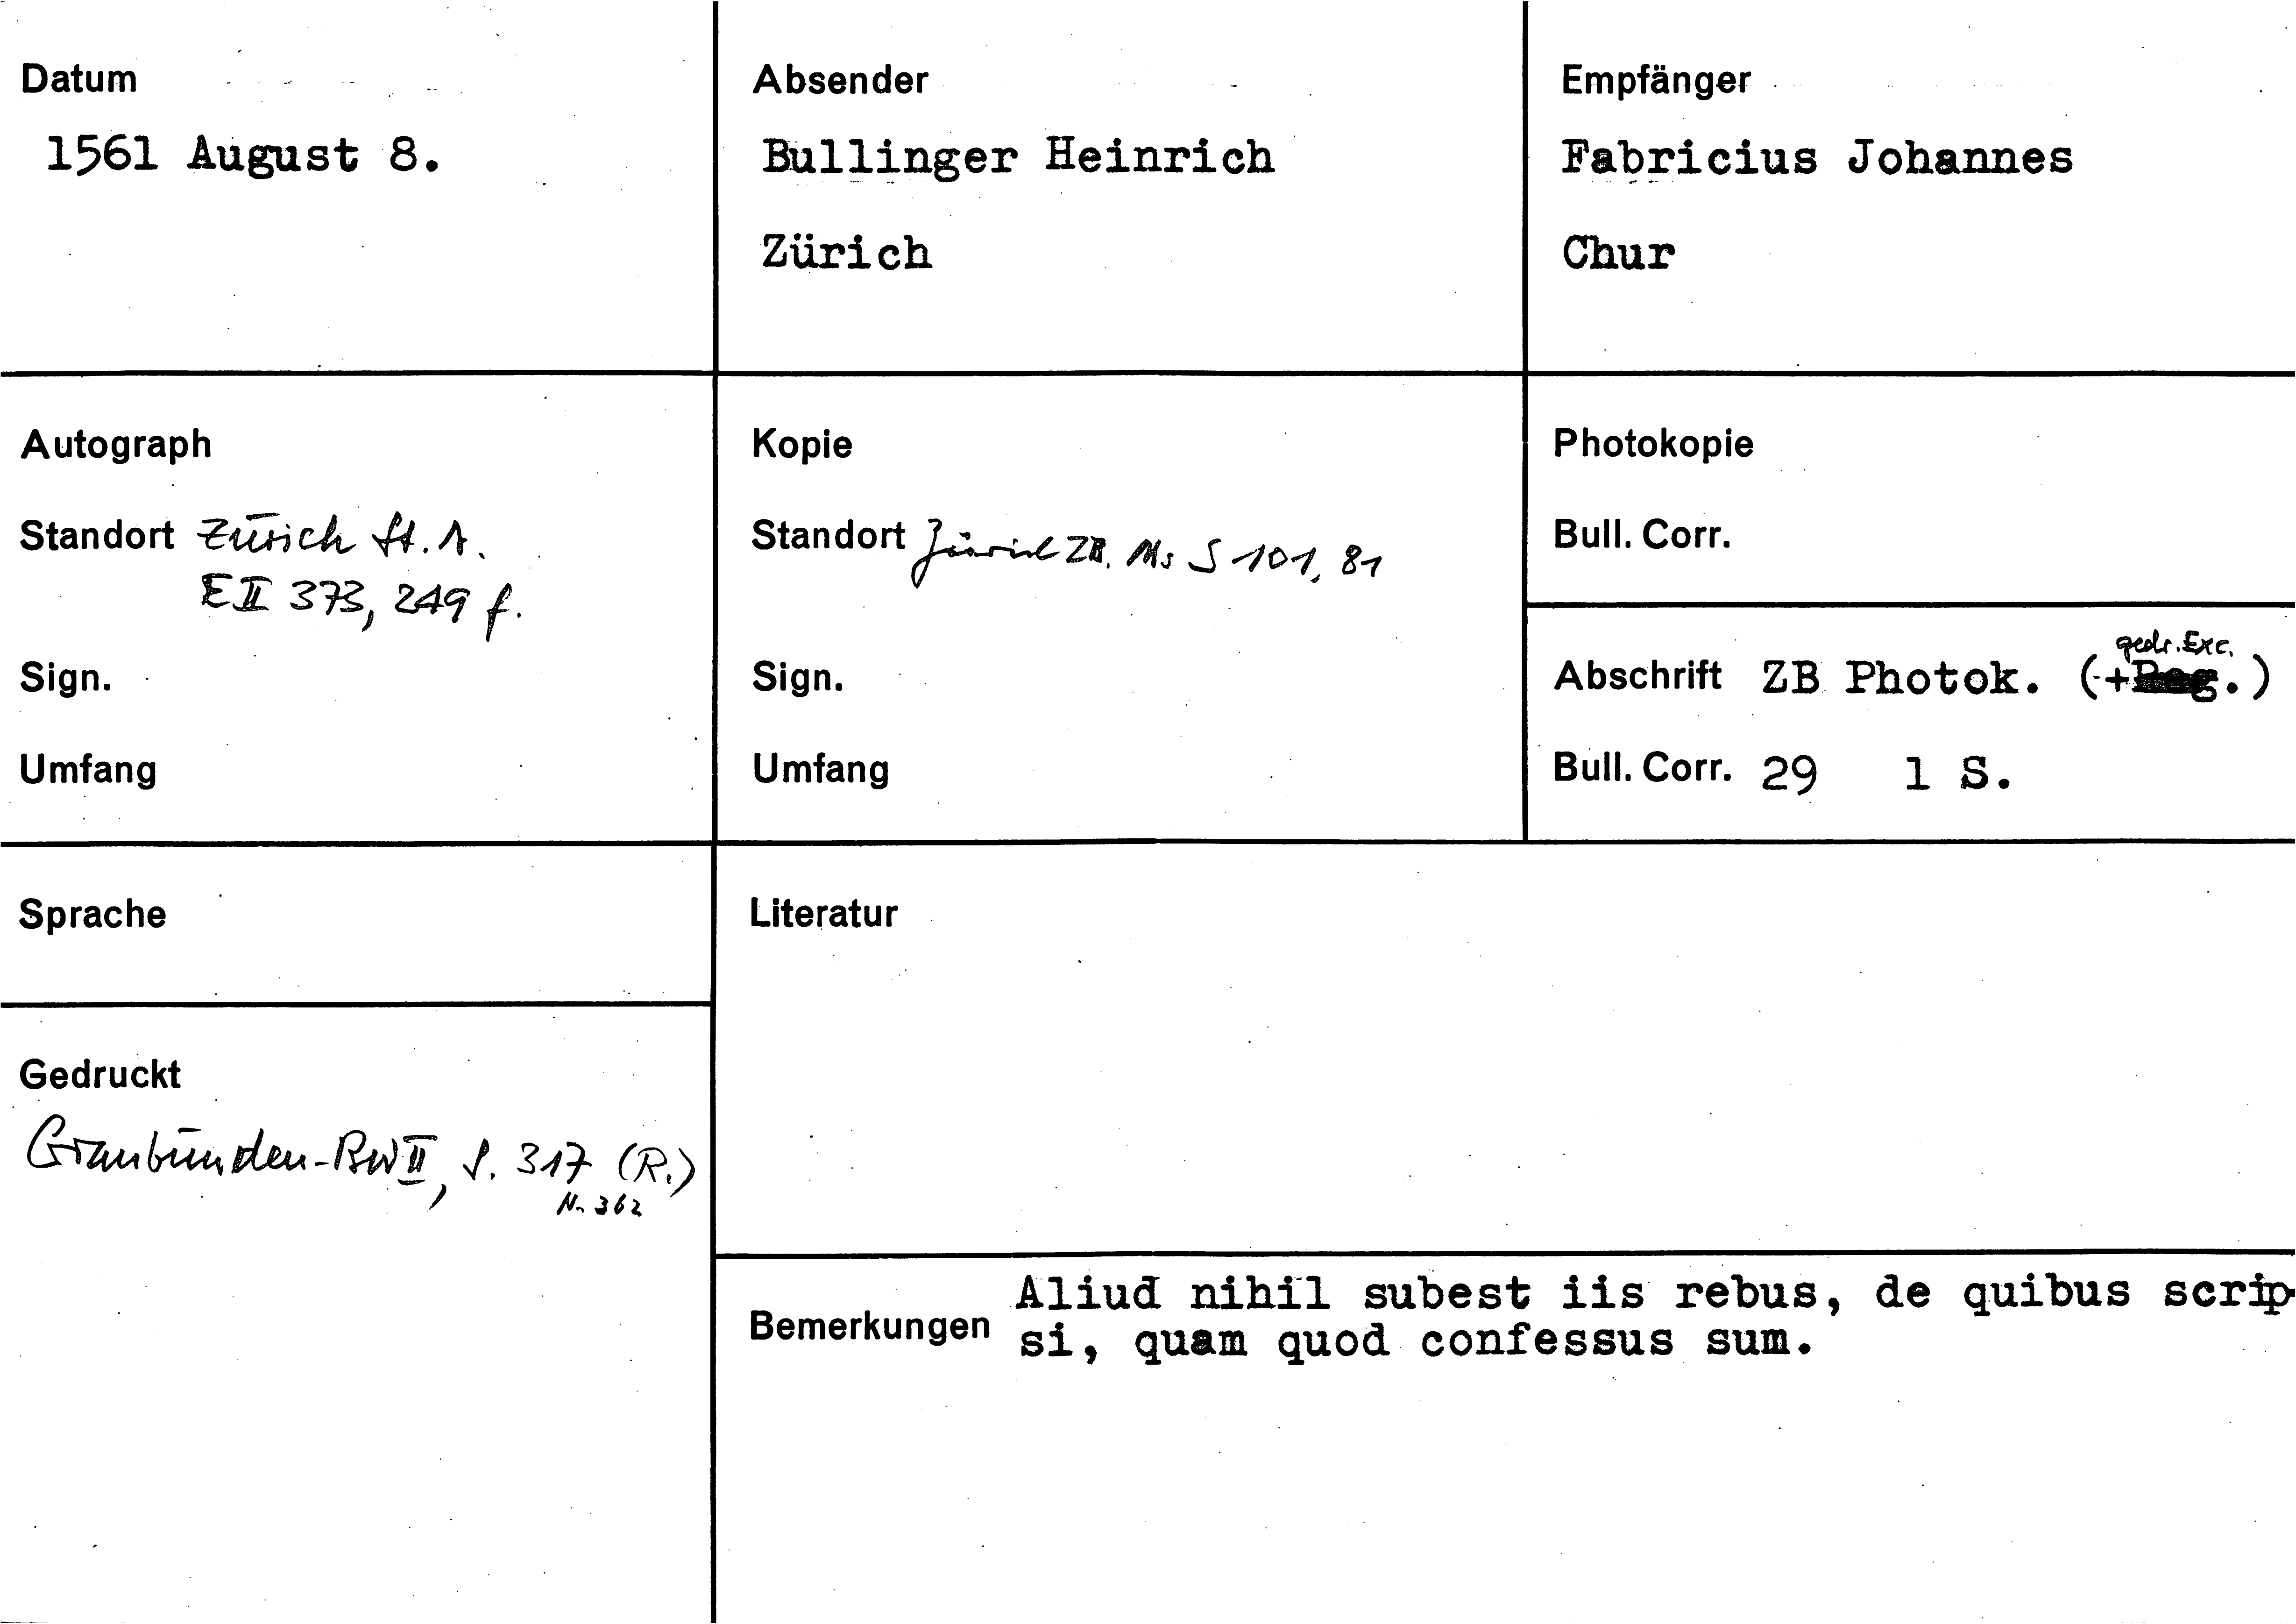 Datum
1561 August 8.
Absender
Bullinger Heinrich
Zürich
Empfänger
Fabricius Johannes
Chur
Autograph
Standort Zürich St. A.
E II 373, 249 f.
Sign.
Umfang
Kopie
Standort Zürich ZB. Ms S 101, 81
Sign.
Umfang
Photokopie
Bull. Corr.
gedr. Exc.
Abschrift ZB Photok. (+Reg.)
Bull. Corr. 29 1 S.
Sprache
Literatur
Gedruckt
Graubünden-BW II, S. 317 (R.)
Nr. 362
Bemerkungen
Aliud nihil subest iis rebus, de quibus scrip-
si, quam quod confessus sum.